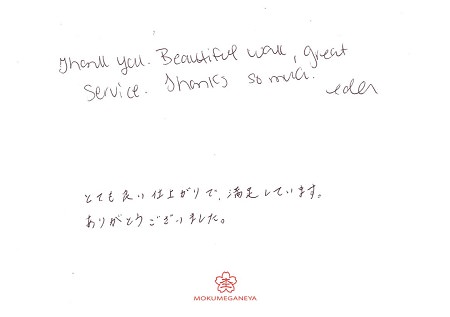 Thank you. Beautiful work, great
Service. Thanks so much.
eden
とても良い仕上がりで、満足しています。
ありがとうございました。
MOKUMEGANEYA